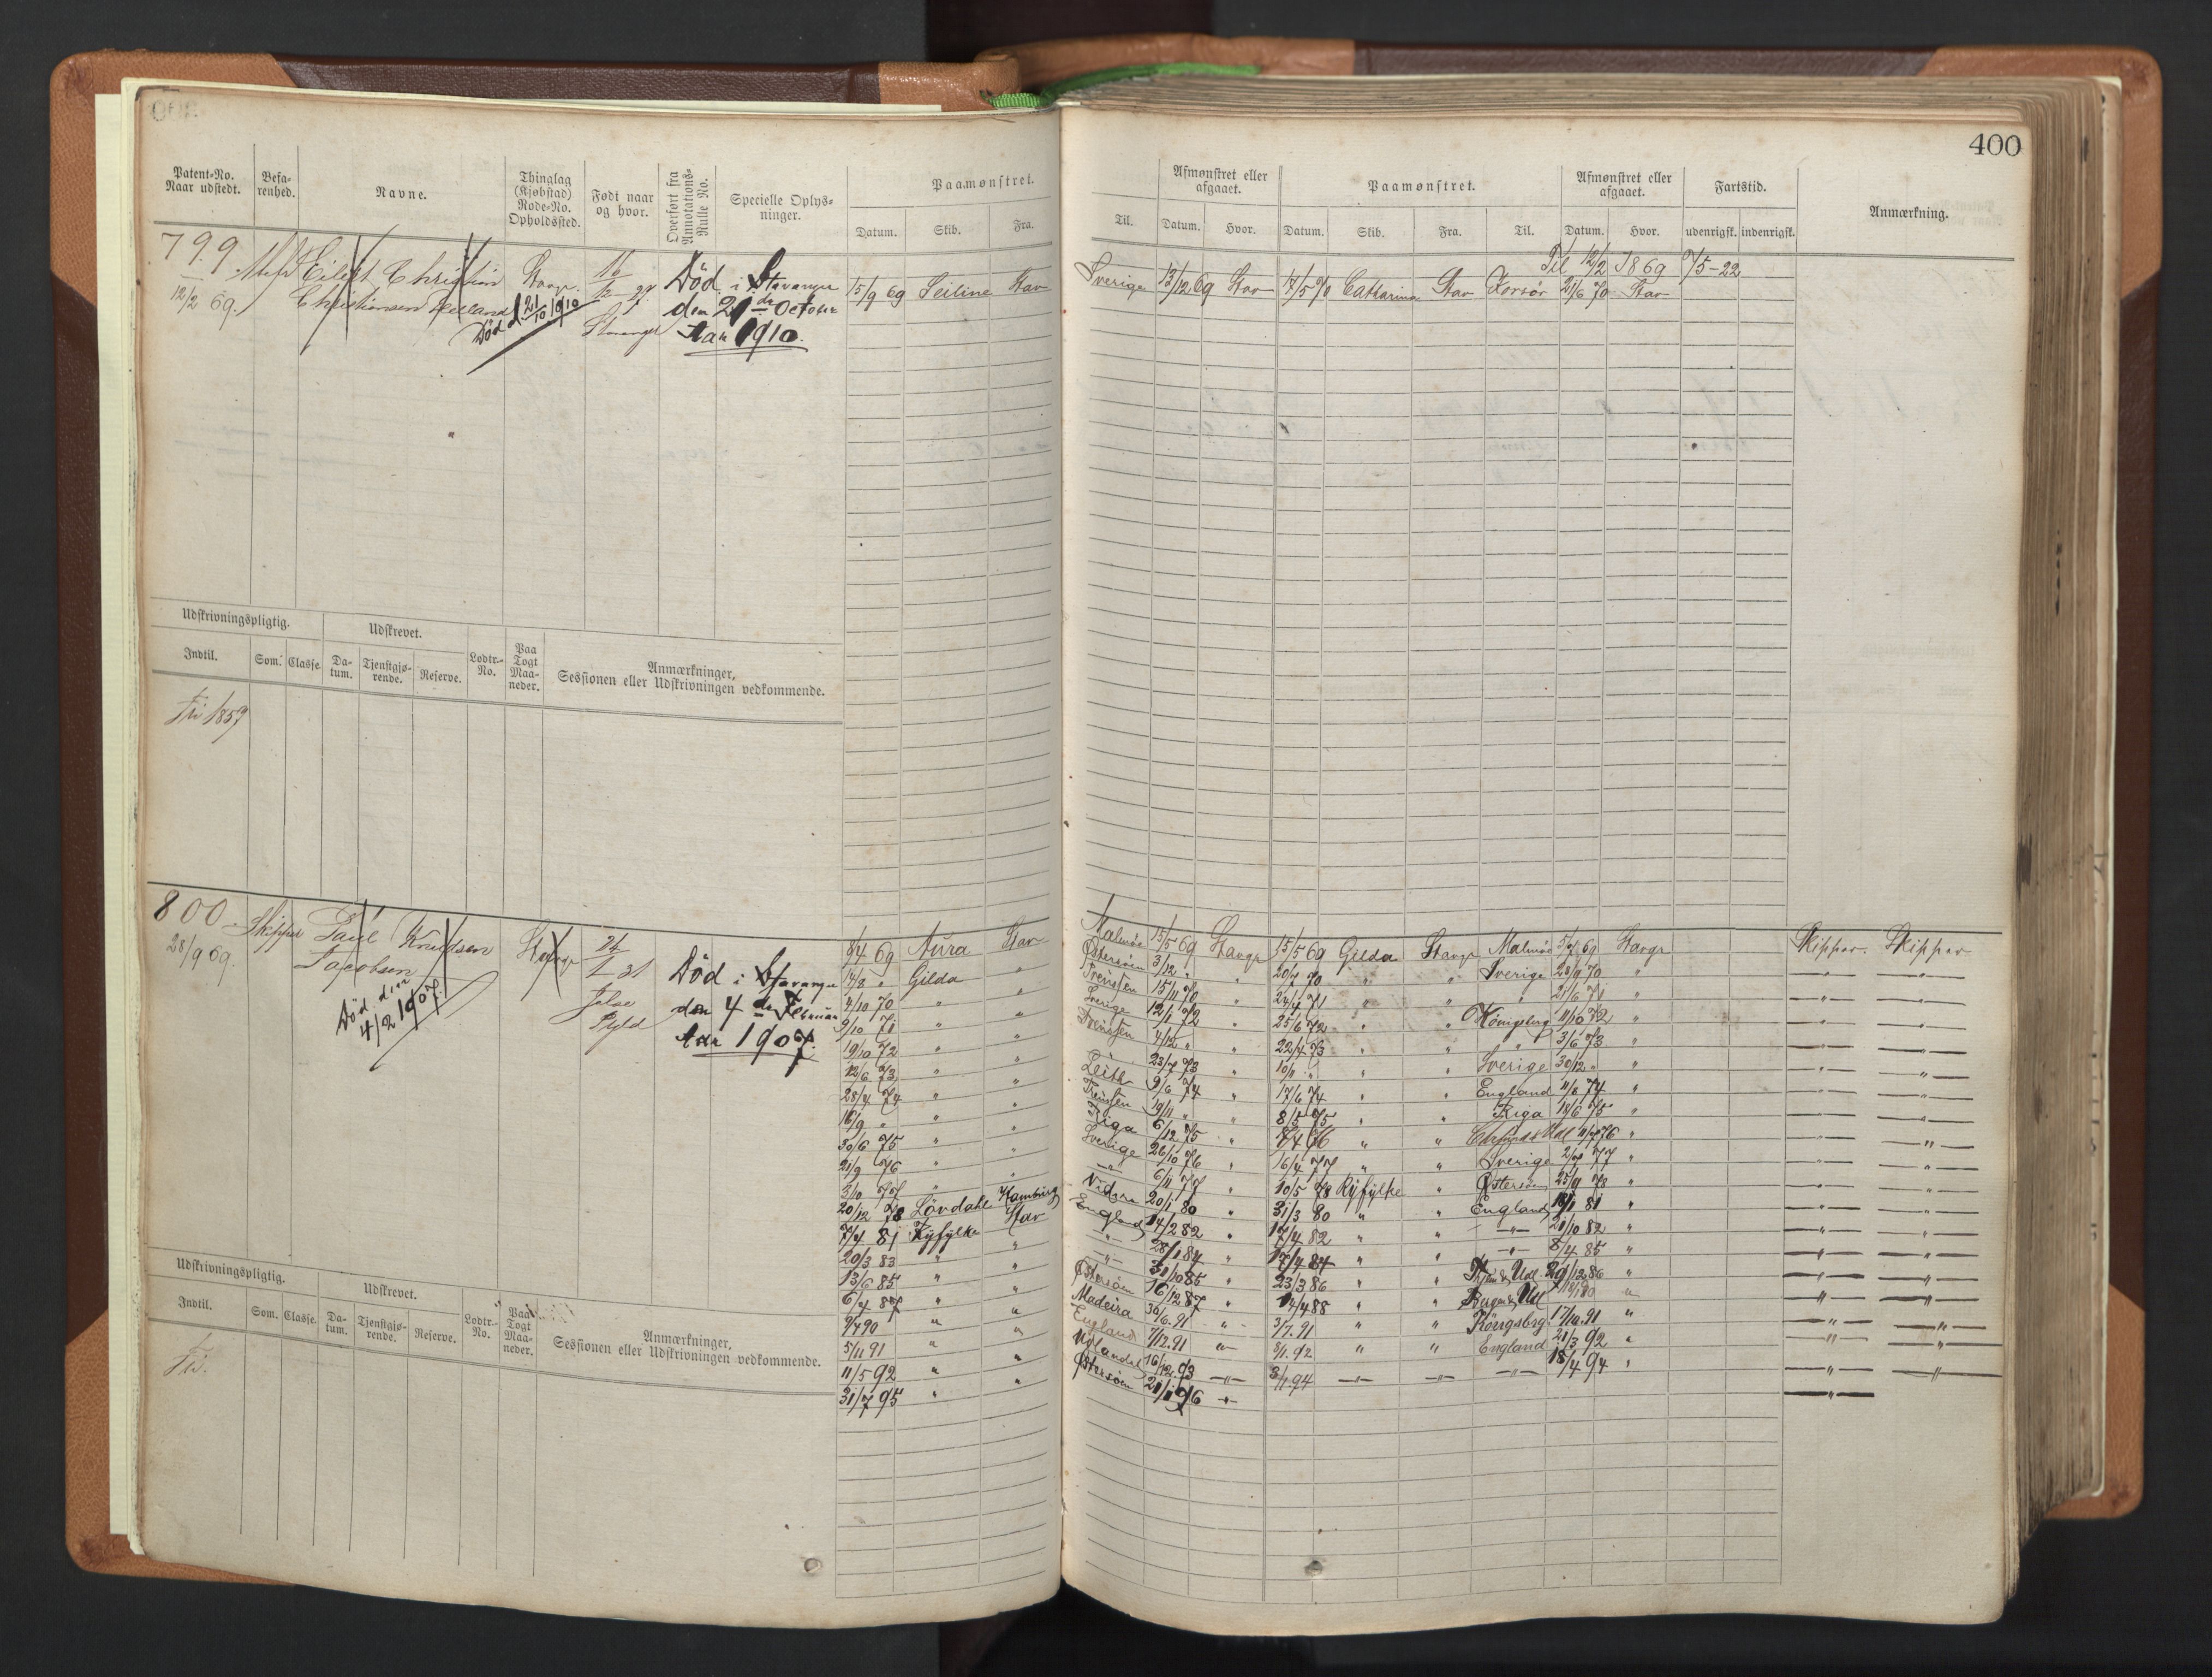 400
Patent-No. Naar udstedt.
Befa-renhed.
Navne.
Thinglag (Kjøbstad) Rode-No. Opholdssted.
Født naar og hvor.
Overført fra Annotations-Rulle No.
Specielle Oplys-ninger.
Paamønstret.
Datum. Skib. Fra.
Til.
Afmønstret eller afgaaet.
Datum. Hvor.
Paamønstret.
Datum. Skib. Fra. Til.
Afmønstret eller afgaaet.
Datum. Hvor.
Fartstid.
udenrigsk. indenrigsk.
Anmærkning.
Til 12/2 1869 7/5-22
799
12/2 69.
Eilert Christian
Christiansen
Død d 21/10 1910
Stavgr.
Stavanger
Død i Stavanger
den 21de October
Aar 1910.
15/9 69 Seiline Stav
Sverige 13/12 69 Stav 17/5 70 Catharina Stav Korsør 21/6 70 Stav
Udskrivningspligtig.
Udskrevet.
Indtil. Som. Classe. Da-tum. Tjenstgjø-rende. Reserve. Lodtr.-No. Paa Togt Maa-neder.
Anmærkninger, Sessionen eller Udskrivningen vedkommende.
Fri 1859
800
28/9 69.
Skipper
Paul Knudsen
Jacobsen
Død den
4/2 1907.
Stavgr
Jelse
Ryfld
Død i Stavanger
den 4de Februar
Aar 1907.
8/4 69 Aura Stav
14/8 " Gilda "
4/10 70 " "
9/10 71 " "
19/10 72 " "
12/6 73 " "
28/4 74 " "
16/9 " " "
30/6 75 " "
21/9 76 " "
3/10 77 " "
20/12 78 Lövdahl Hamburg
7/4 81 Ryfylke Stav
20/3 83 " "
13/6 85 " "
6/4 87 " "
9/4 90 " "
5/11 91 " "
11/5 92 " "
31/7 95 " "
Malmöe 15/5 69 Stavgr 15/5 69 Gilda Stavgr Malmöe 69 Stavgr Skipper. Skipper
Østersøen 3/12 " " 20/7 70 " " Sverige 28/9 70 "
Preussen 15/11 70 " 24/4 71 " " " 21/6 71 "
Sverige 12/1 72 " 25/6 72 " " Königsberg 11/10 72 "
Preussen 4/12 " " 22/4 73 " " " 3/6 73 "
23/7 73 " 10/11 " " " Sverige 30/12 " "
Leith 9/6 74 " 17/6 74 " " England 11/8 74 "
Preussen 19/11 " " 8/5 75 " " Riga 18/6 75 "
Riga 6/12 75 " 76 " " 76 "
Sverige 26/10 76 " 16/4 77 " " Sverige 77 "
" 6/11 77 " 10/5 78 Ryfylke " Østersøen 25/9 78 "
20/1 80 " 31/3 80 " " England 81 "
England 14/2 82 " 17/4 82 " " " 21/10 82 "
" 28/1 84 " 17/4 84 " " " 8/4 85 "
" 31/10 85 " 23/3 86 " " Udl 29/12 86 "
Østersøen 16/12 87 " 14/4 88 " " Udl "
Madeira 30/6. 91 " 3/7. 91 " " Königsbrg 17/10. 91 "
England 7/12. 91 " 3/1. 92 " " England 21/3 92 "
Udlandet 16/12. 93 " 3/1 94 " " " 18/4 94 "
Østersøen 21/1 96 "
Udskrivningspligtig.
Udskrevet.
Indtil. Som. Classe. Da-tum. Tjenstgjø-rende. Reserve. Lodtr.-No. Paa Togt Maa-neder.
Anmærkninger, Sessionen eller Udskrivningen vedkommende.
Fri.